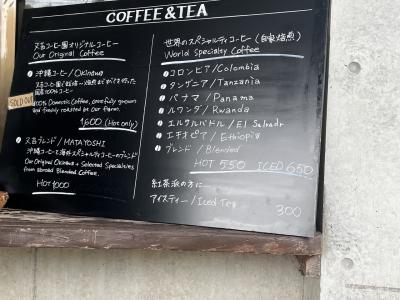 COFFEE & TEA
又吉コーヒー園オリジナルコーヒー
Our Original Coffee
沖縄コーヒー/Okinwa
国産100%コーヒー
SOLD OUT
100% Domestic Coffee, carefully grown
and freshly roasted by our farm.
1,600 (Hot only)
又吉ブレンド/MATAYOSHI
沖縄コーヒーと海外スペシャルティコーヒーのブレンド
Our Original Okinwa + Selected Specialities
from abroad Blended Coffee.
HOT 1000
世界のスペシャルティコーヒー(自家焙煎)
World Specialty Coffee
コロンビア/Colombia
タンザニア/Tanzania
パナマ/Panama
ルワンダ/Rwanda
エルサルバドル/El Salvador
エチオピア/Ethiopia
ブレンド/Blended
HOT 550 ICED 650
紅茶派の方に
アイスティー/Iced Tea
300